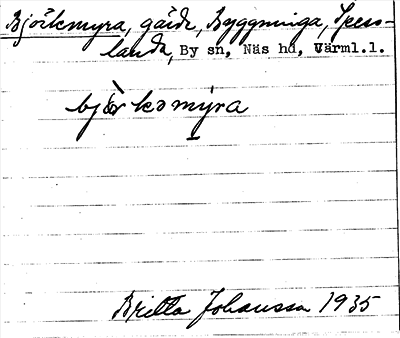 Björkmyra, gärde, Byggninga, Spess-
landa, By sn, Näs hd, Värml.l.
björkomýra
Britta Johansson 1935